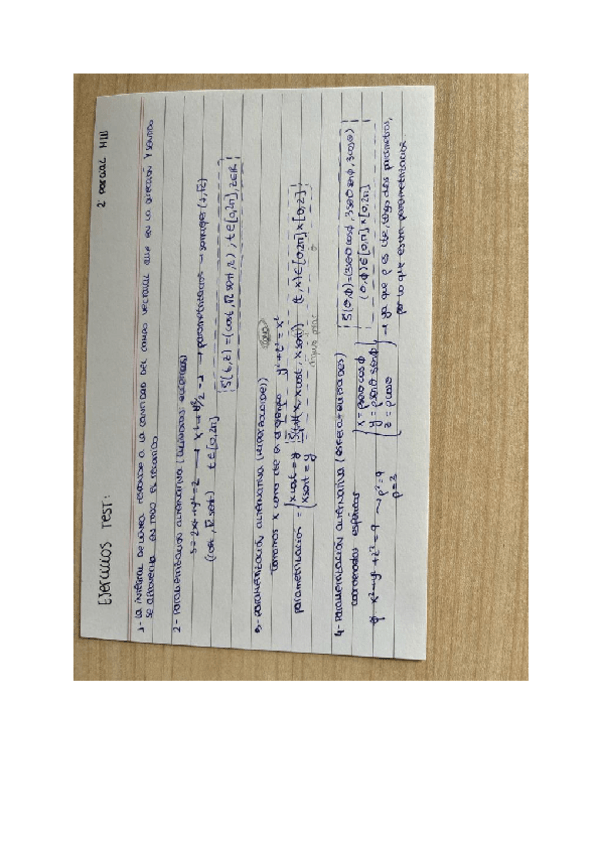 Ejercicios TEST:
2º PARCIAL MIII
1- La integral de línea responde a la cantidad del campo vectorial que en la dirección y sentido
se atraviesa en todo el recorrido
2- Parametrización alternativa (cilindros elípticos)
S = 2x² + y² = 2 → x² + y²/2 = 1 → parametrizamos → semiejes (1, √2)
(cost, √2 sent) t ∈ [0, 2π]
S(t, z) = (cost, √2 sent, z), t ∈ [0, 2π], z ∈ ℝ
3- Parametrización alternativa (
Tomamos x como eje y² + z² = x² cono
parametrización = { xcost = z
xsent = y
S(t, x) = (x, xcost, xsent) (t, x) ∈ [0, 2π] × [0, 2]
4- Parametrización alternativa (esfera + elipsoides)
coordenadas esféricas
x = ρ senθ cosφ
y = ρ senθ senφ
z = ρ cosθ
S(θ, φ) = (3senθ cosφ, 3senθ senφ, 3cosθ)
(θ, φ) ∈ [0, π] × [0, 2π]
→ ya que ρ es cte, tengo dos parámetros,
por lo que están parametrizados.
x² + y² + z² = 9 → ρ² = 9